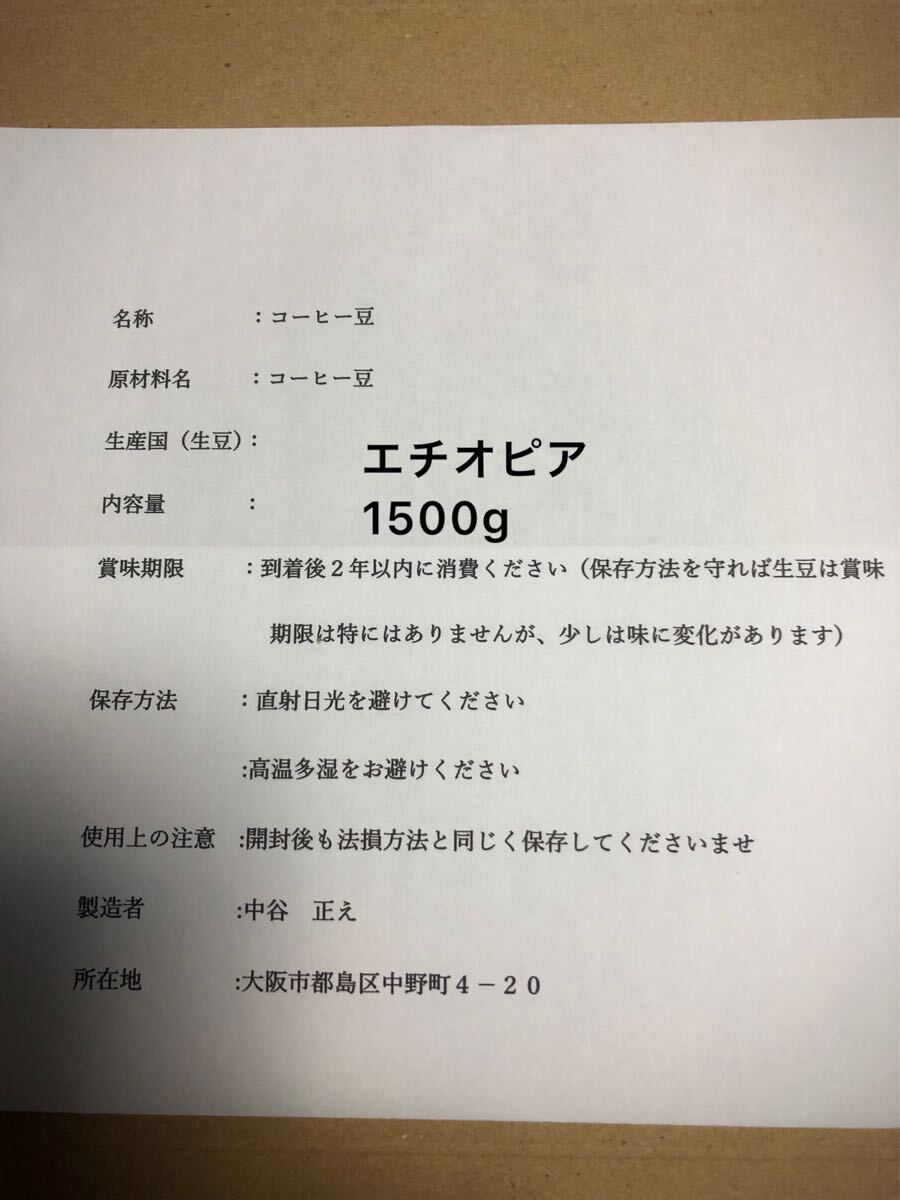 名称　　　　：コーヒー豆
原材料名　　：コーヒー豆
生産国（生豆）：エチオピア
内容量　　　：1500g
賞味期限　　：到着後２年以内に消費ください（保存方法を守れば生豆は賞味
期限は特にはありませんが、少しは味に変化があります）
保存方法　　：直射日光を避けてください
:高温多湿をお避けください
使用上の注意　:開封後も法損方法と同じく保存してくださいませ
製造者　　　:中谷　正え
所在地　　　:大阪市都島区中野町４－２０